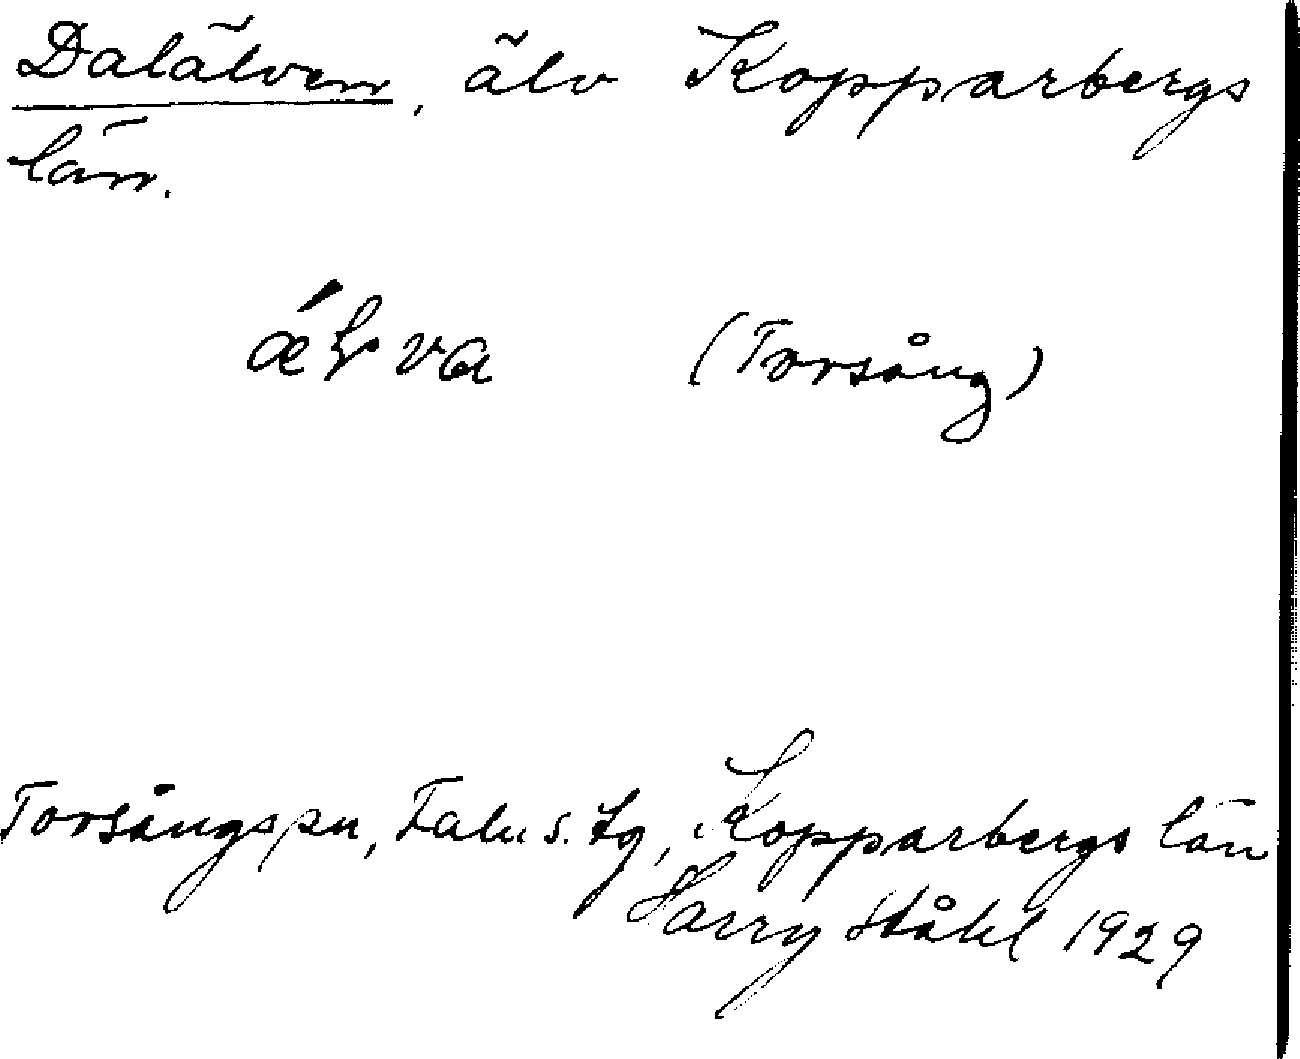 Dalälven, älv Kopparbergs
län.
(Torsång)
Torsångs sn, Falu s. tg, Kopparbergs län
Harry Ståhl 1929